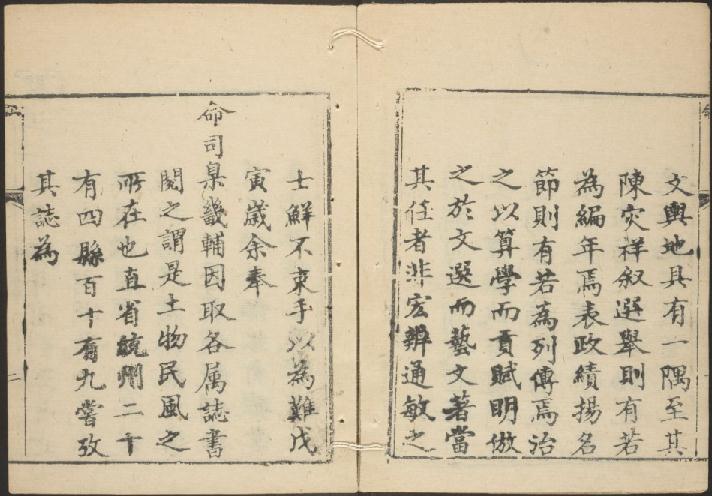 文輿地具有一隅至其
陳灾祥叙選舉則有若
為編年焉表政績揚名
節則有若為列傳焉治
之以算學而貢賦明倣
之於文選而藝文著當
其任者非宏辨通敏之
士鮮不束手以為難戊
寅歲余奉
命司臬畿輔因取各属誌書
閱之謂是土物民風之
所在也直省統州二十
有四縣百十有九嘗攷
其誌為